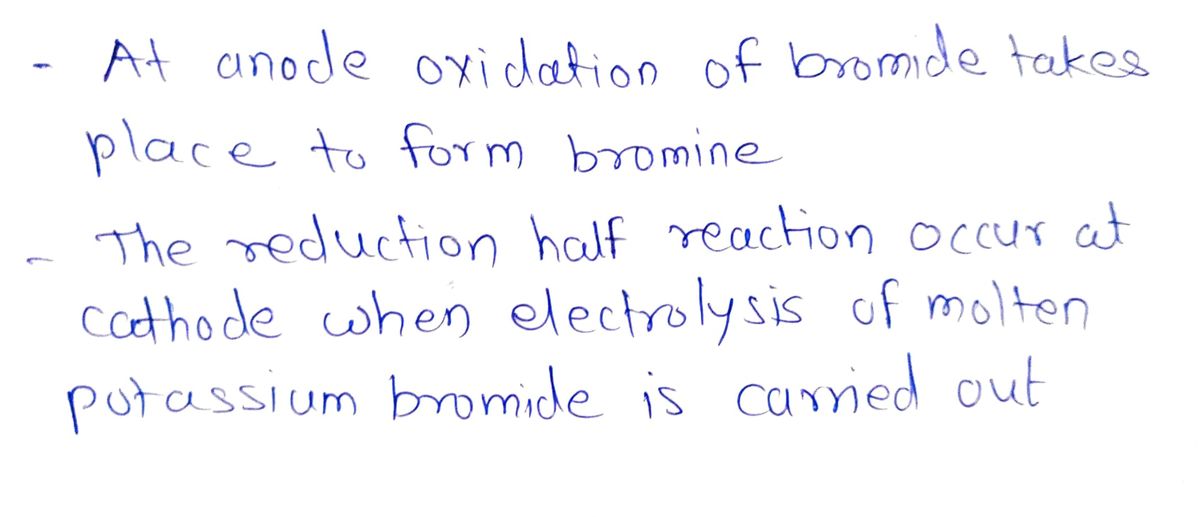 - At anode oxidation of bromide takes
place to form bromine
- The reduction half reaction occur at
cathode when electrolysis of molten
potassium bromide is carried out